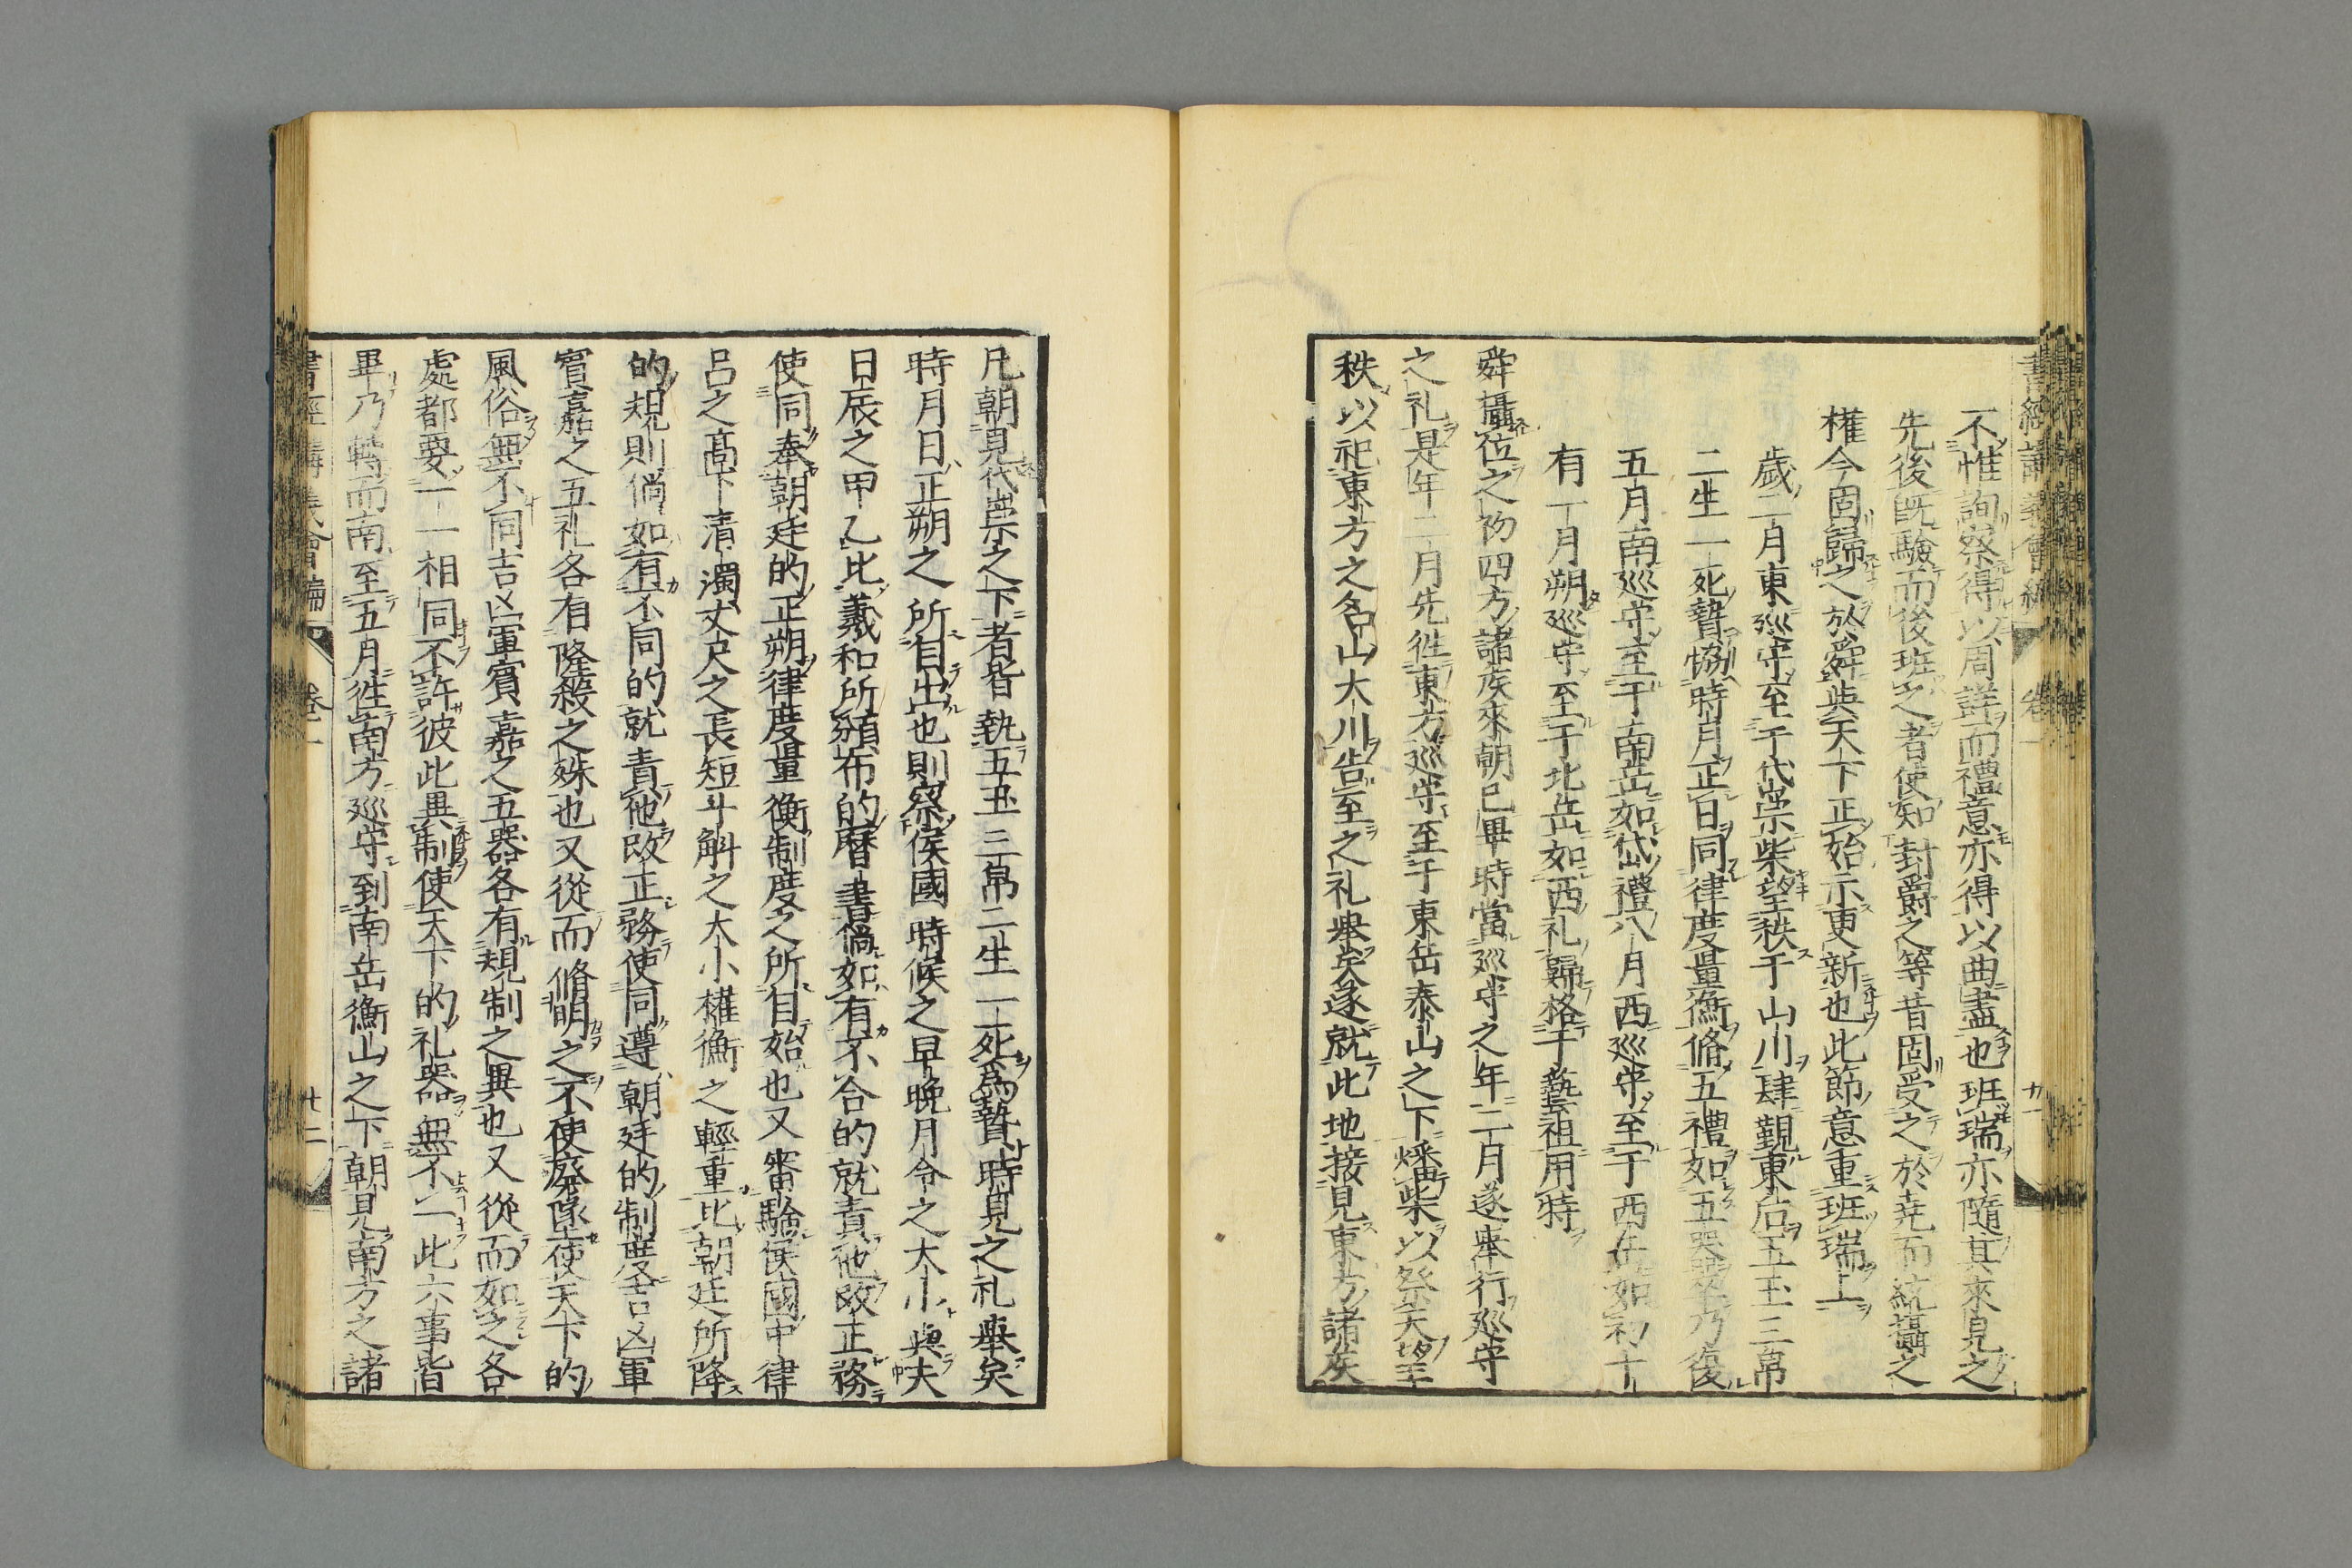 不惟詢察得以周詳而禮意亦得以曲盡也班瑞亦隨其來見之
先後既驗而後班之者使知封爵之等昔固受之於堯而統攝之
權今固歸之於舜與天下正始示更新也此節意重班瑞上
歲二月東巡守至于代宗柴望秩于山川肆覲東后五玉三帛
二生一死贄協時月正日同律度量衡脩五禮如五器卒乃復
五月南巡守至于南岳如岱禮八月西巡守至于西岳如初十
有一月朔巡守至于北岳如西礼歸格于藝祖用特
舜攝位之初四方諸矦來朝已畢時當巡守之年二月遂舉行巡守
之礼是年二月先徃東方巡守至于東岳泰山之下燔柴以祭天望
秩以祀東方之名山大川告至之礼舉矣遂就此地接見東方諸矦
凡朝見代宗之下者皆執五玉三帛二生一死爲贄時見之礼舉矣
時月日正朔之所自出也則察侯國時候之早晚月令之大小與夫
日辰之甲乙比羲和所頒布的曆書倘如有不合的就責他改正務
使同奉朝廷的正朔律度量衡制度之所自始也又審驗侯國中律
呂之高下清濁丈尺之長短斗斛之大小權衡之輕重比朝廷所降
的規則倘如有不同的就責他改正務使同遵朝廷的制度吉凶軍
賓嘉之五礼各有隆殺之殊也又從而脩明之不使廢墜使天下的
風俗無不同吉凶軍賓嘉之五器各有規制之異也又從而如之各
處都要一一相同不許彼此異制使天下的礼器無不一此六事皆
畢乃轉而南至五月徃南方巡守到南岳衡山之下朝見南方之諸
書經講義會編 卷一 廿二